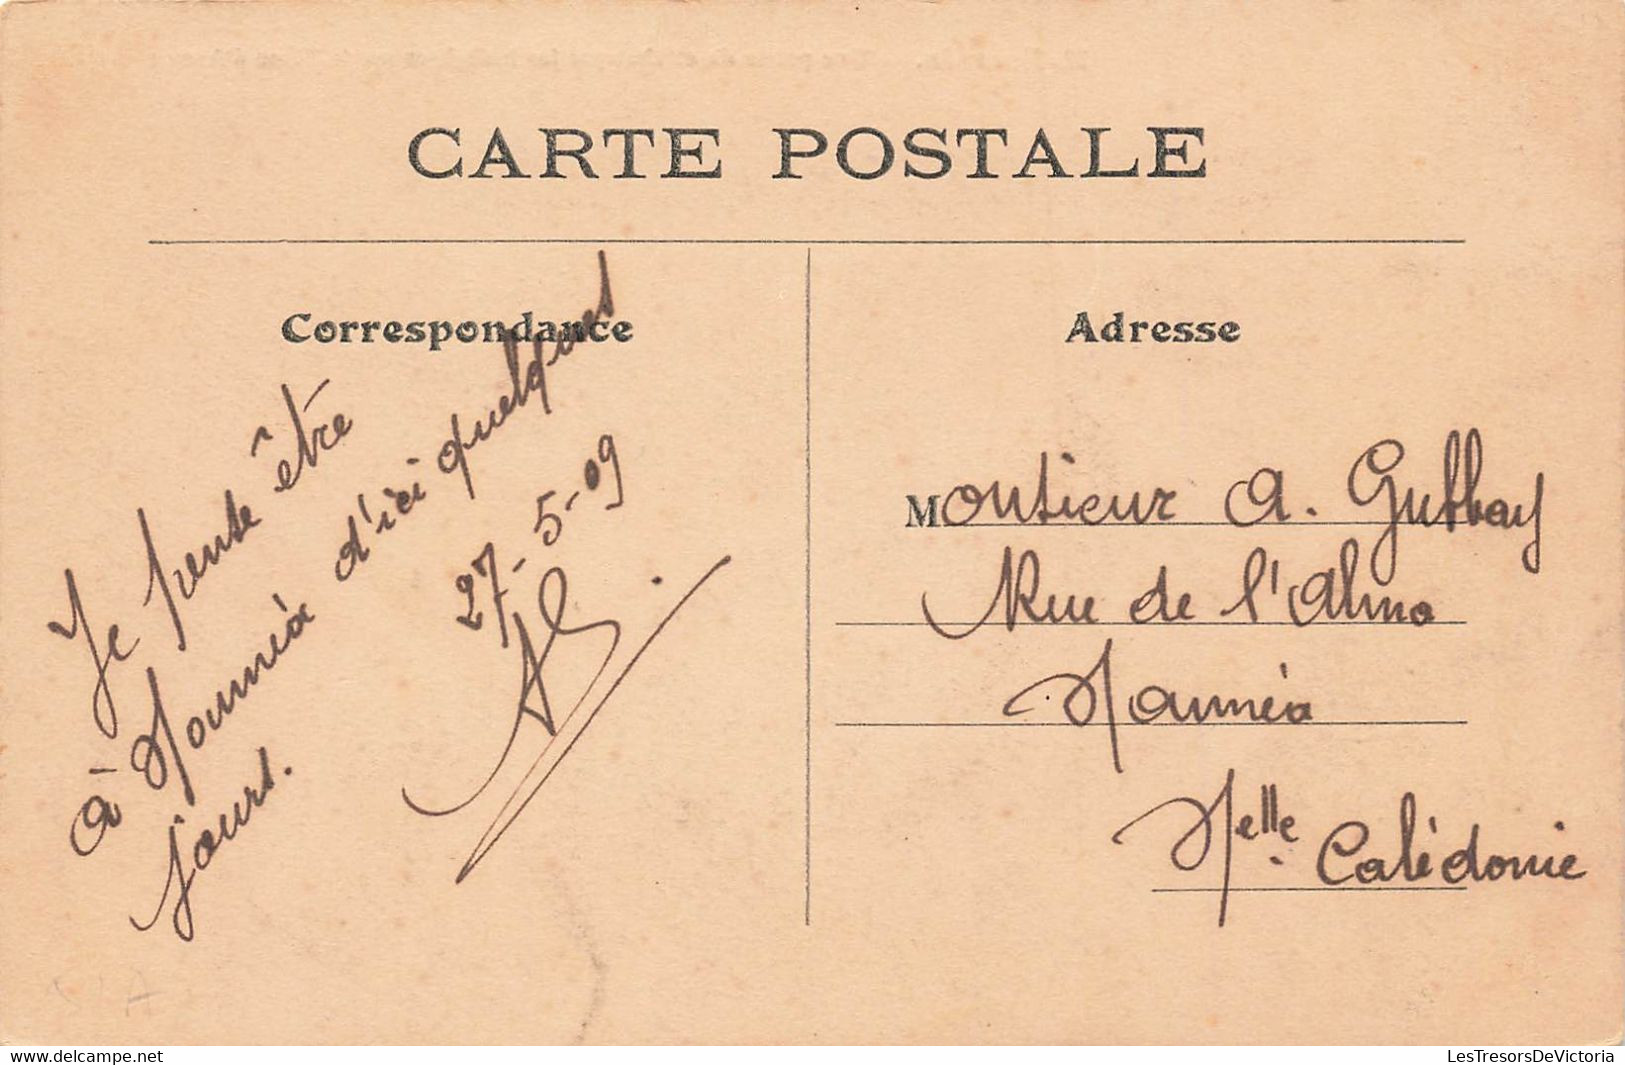 CARTE POSTALE
Correspondance
Je pense être
à Nouméa d'ici quelques
jours.
27-5-09
Adresse
Monsieur A. Gubbay
Rue de l'Alma
Nouméa
Nelle Calédonie
LesTresorsDeVictoria
delcampe.net